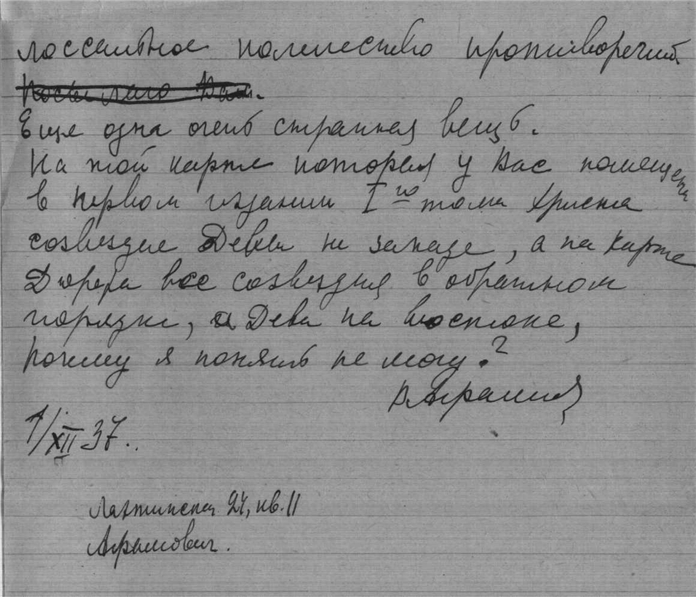 лоссальное количество противоречий.
Посылаю Вам.
Еще одна очень странная вещь.
На той карте которая у Вас помещена
в первом издании I го тома Христа
созвездие Девы на западе, а на карте
Дюрера все созвездия в обратном
порядке, а Дева на востоке,
почему я понять не могу?
1/XII 37.
Лахтинская 24, кв. 11